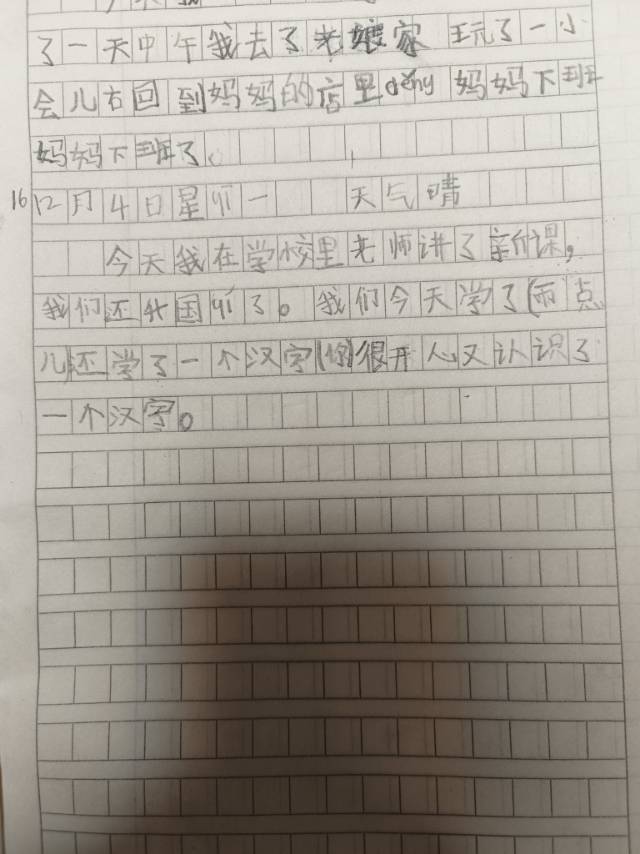 了一天中午我去了老娘家 玩了一小
会儿右回到妈妈的店里děng妈妈下班
妈妈下班了、
16 12月4日星 一 天气晴
今天我在学校里老师讲了 课，
我们还 国 了。我们今天学了(雨点
儿)还学了一个汉字(你)很开人又认识了
一个汉字。